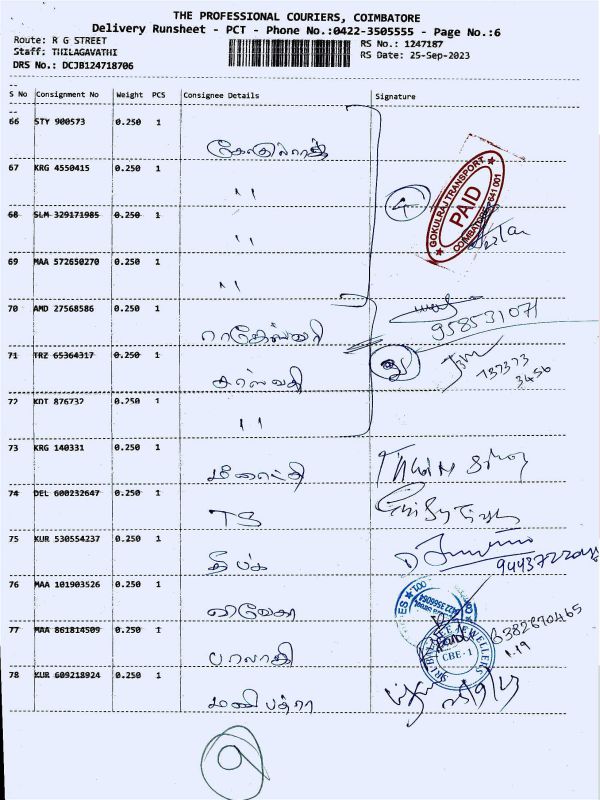 THE PROFESSIONAL COURIERS, COIMBATORE
Delivery Runsheet - PCT - Phone No.:0422-3505555 - Page No.:6
Route: R G STREET
RS No.: 1247187
Staff: THILAGAVATHI
RS Date: 25-Sep-2023
DRS No.: DCJB124718706
S No Consignment No Weight PCS Consignee Details Signature
66 STY 900573 0.250 1
67 KRG 4550415 0.250 1
" "
4
GOKULRAJ TRANSPORT
PAID
COIMBATORE-641 001
68 SLM 329171985 0.250 1
" "
69 MAA 572650270 0.250 1
" "
70 AMD 27568586 0.250 1
ராஜேஸ்வரி
958531071
71 TRZ 65364317 0.250 1
சரஸ்வதி
737373
3456
72 KDT 876732 0.250 1
" "
73 KRG 140331 0.250 1
மீனாட்சி
74 DEL 600232647 0.250 1
TS
75 KUR 530554237 0.250 1
தீபக்
76 MAA 101903526 0.250 1
விவேகா
77 MAA 861814509 1
பாலாஜி
6382670465
JEWELLERS
CBE-1
78 KUR 609218924 0.250 1
மணி பத்ரா
25/9/23
9